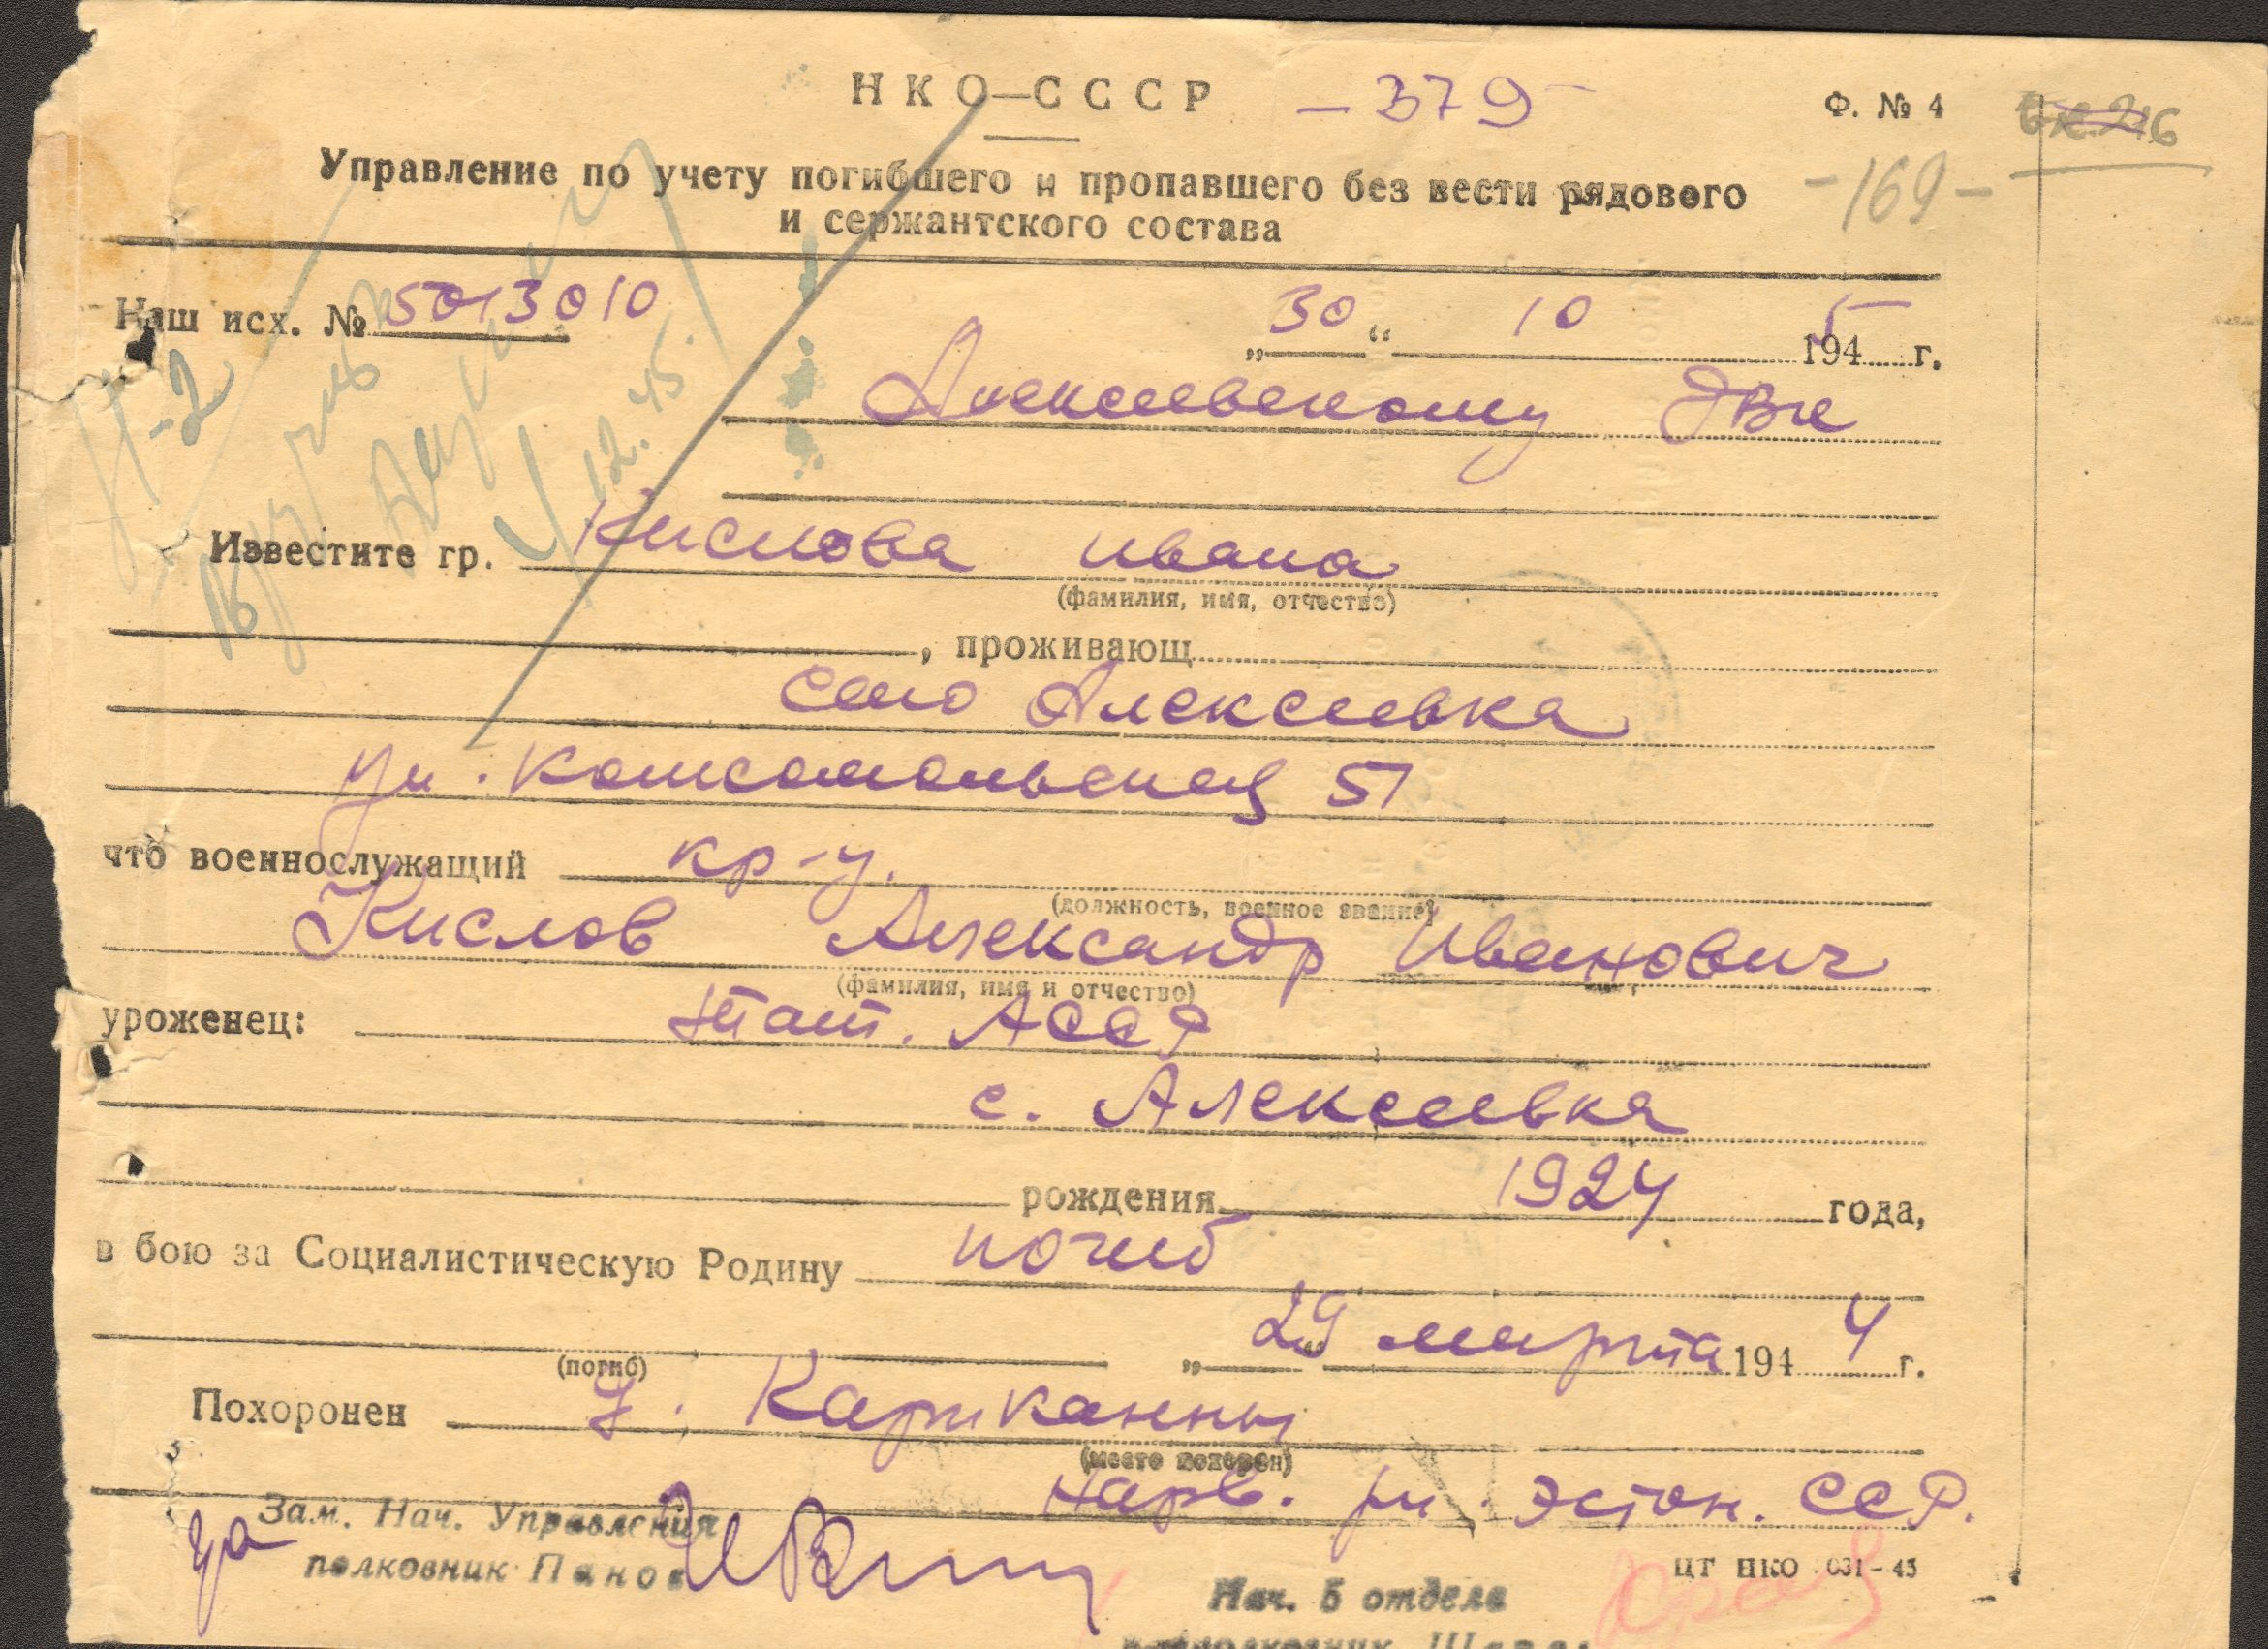 НКО—СССР – 379 – Ф. № 4
Управление по учету погибшего и пропавшего без вести рядового – 169 –
и сержантского состава
Наш исх. № 5013010 „30“ 10 1945 г.
Алексеевскому РВК
Известите гр. Кислова Ивана
(фамилия, имя, отчество)
, проживающ
село Алексеевка
ул. Комсомольская 51
что военнослужащий кр-ц.
(должность, военное звание)
Кислов Александр Иванович
(фамилия, имя и отчество)
уроженец: Тат. АССР
с. Алексеевка
рождения 1924 года,
в бою за Социалистическую Родину погиб
(погиб) „29“ марта 1944 г.
Похоронен
(место похорон)
Нарв. рн. Эстон. ССР.
за Зам. Нач. Управления
полковник Панов
ЦТ НКО 031-45
Нач. 5 отдела